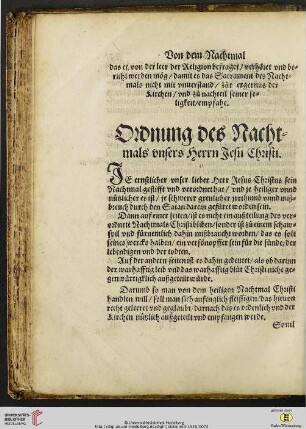 Von dem Nachtmal
das er, von der leer der Religion befraget / verhöret vnd be-
richt werden mög / damit es das Sacrament des Nacht-
mals nicht mit vnuerstand / zür ergernus der
Kirchen / vnd zü nachteil seiner se-
ligkeit / empfahe.
Ordnung des Nacht-
mals vnsers Herrn Jesu Christi.
JE ernstlicher vnser lieber Herr Jesus Christus sein
Nachtmal gestifft vnd verordnet hat / vnd je heiliger vnnd
nützlicher es ist / je schwerer grewlicher jrrthumb vnnd miß-
breuch durch den Satan daran gestifftet worden sein.
Dann auff einer seiten / ist es nicht ein außteilung des ver-
ordnete Nachtmals Christi blieben / sonder ist zü einem schaw-
spil vnd fürnemlich dahin mißbraucht worden / das es solt
seines wercks halben / ein versönopffer sein für die sünde / der
lebendigen vnd der todten.
Auff der andern seiten / ist es dahin gedeutet / als ob darinn
der warhafftig leib vnd das warhafftig blüt Christi nicht ge-
genwürtigklich außgeteilt würde.
Darumb so man von dem heiligen Nachtmal Christi
handlen will / soll man sich anfenglich fleissigen / das hieuon
recht geleeret vnd geglaubt / darnach das es ordenlich vnd der
Kirchen nützlich außgeteilt vnd empfangen werde.
Souil
UNIVERSITÄTS-
BIBLIOTHEK
HEIDELBERG
© Universitätsbibliothek Heidelberg
gefördert durch
Baden-Württemberg